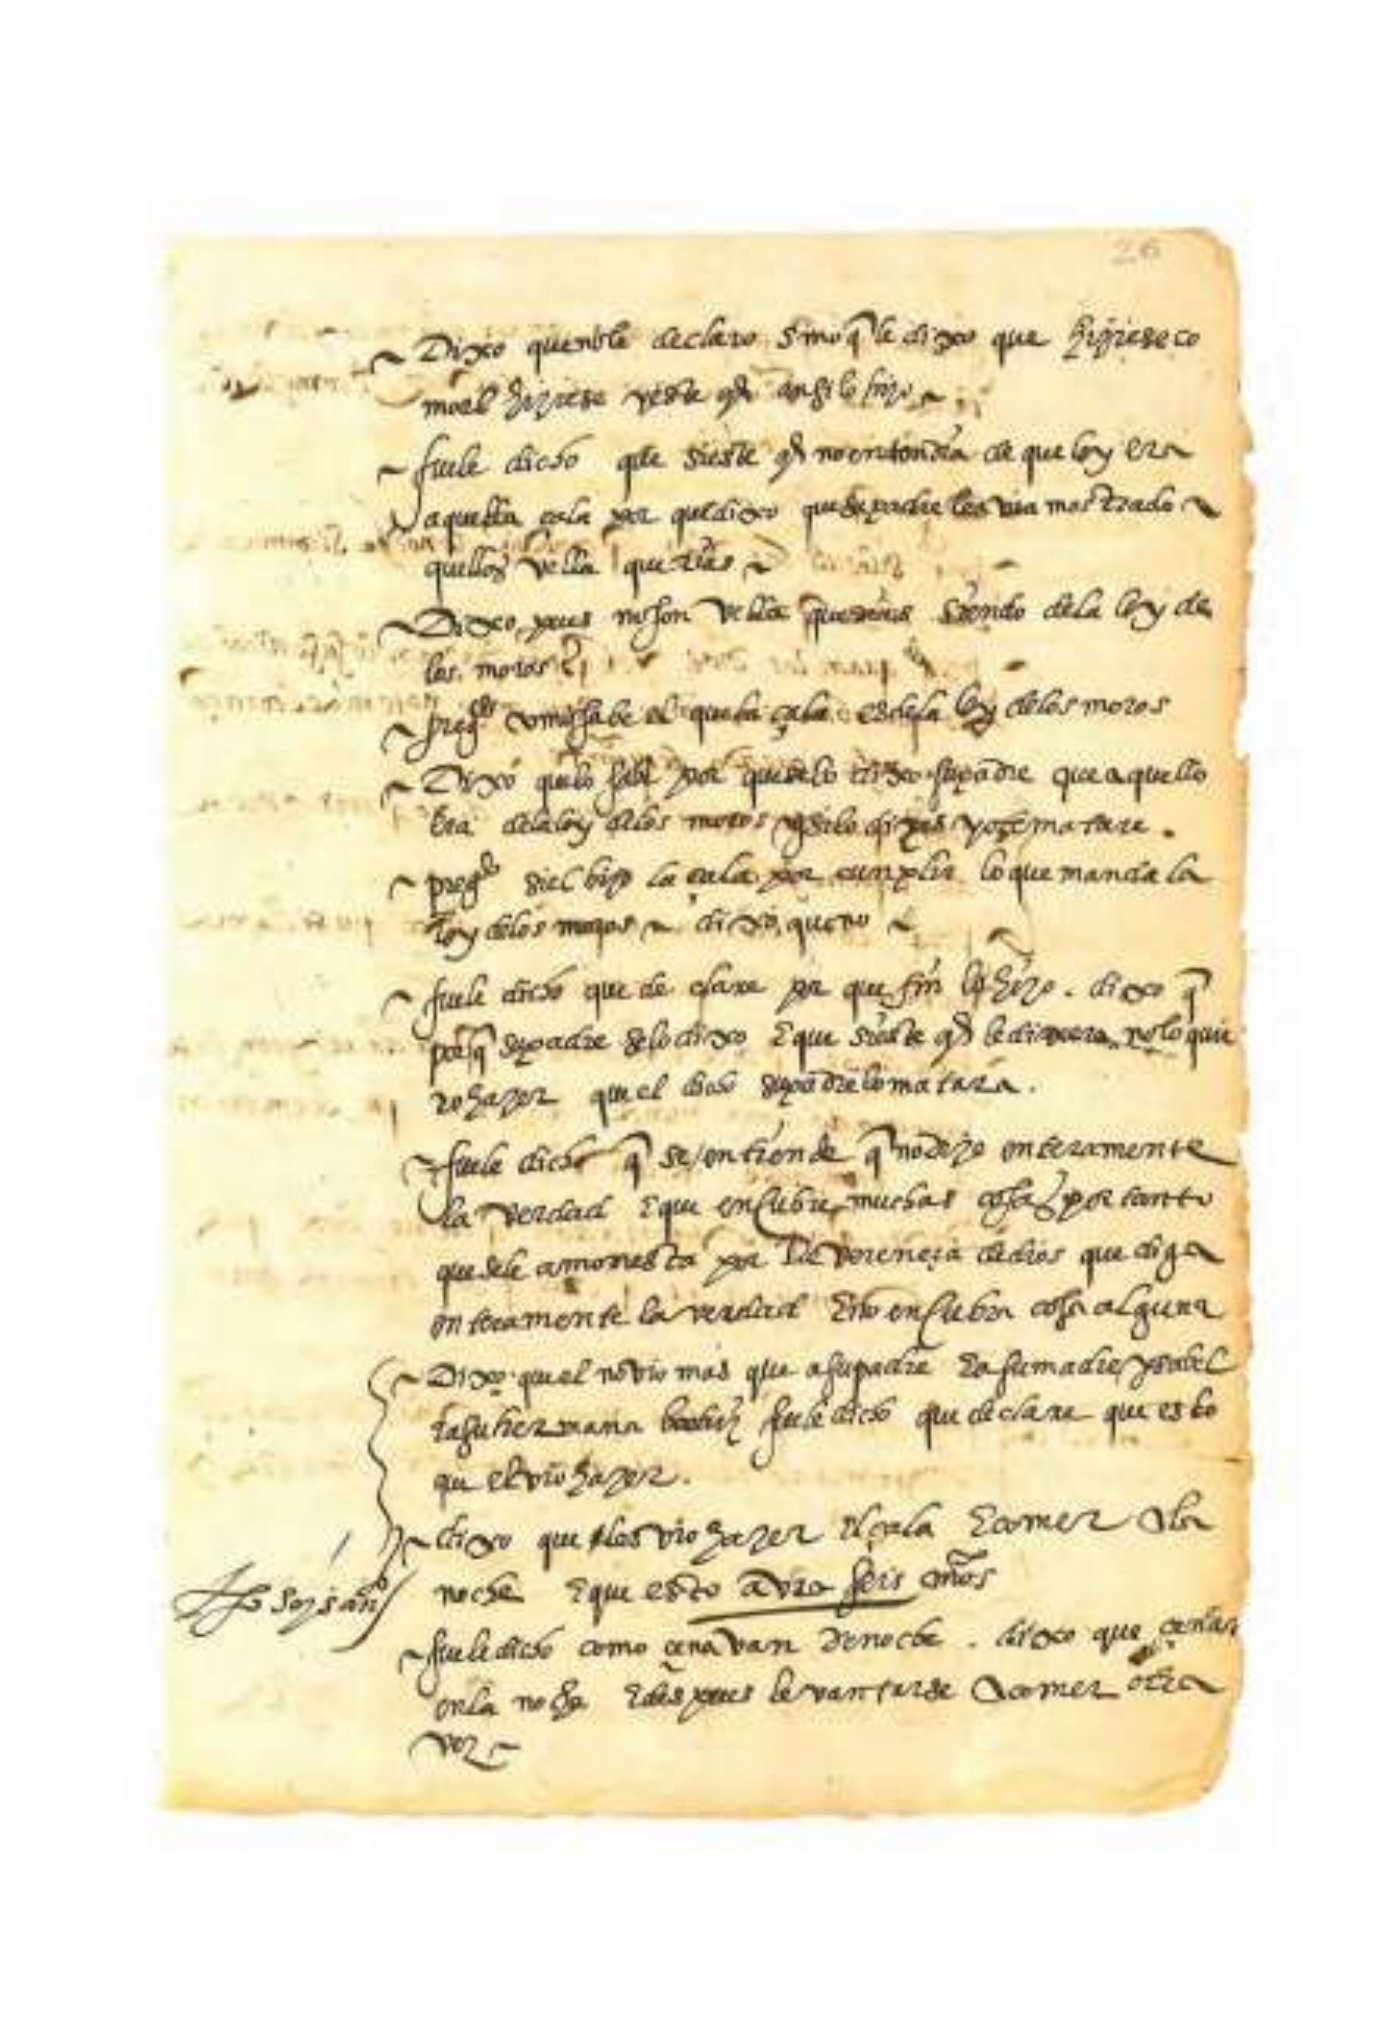 26
Dixo que no le declaro sino q̃ le dixo que hiziese co
mo el hiziese y este q̃ ansi lo hizo
fuele dicho que si este no entendia de que ley era
aquella çala por que dixo que su padre les via mostrado
quellos vella querias
Dixo pues no son vella querias siendo dela ley de
los moros
preg.do como sabe el que la çala es dela ley delos moros
Dixo quelo sabe por que selo dixo su padre que aquello
era dela ley delos moros y si lo dizes yo te matare .
preg.do si el hizo la çala por cunplir lo que manda la
ley delos moros dixo, que no
fuele dicho que declare por que fin lo hizo . dixo q̃
porq̃ su padre selo dixo E que si este le dixera no lo quie
ro hazer quel dicho su padre lo matara .
fuele dicho q̃ se entiende q̃ no dize enteramente
la verdad E que encubre muchas cosas por tanto
que sele amonesta por Reverençia de dios que diga
enteramente la verdad E no encubra cosa alguna
Dixo quel no vio mas que a su padre E a su madre ysabel
E a su hermana fuele dicho que declare que es lo
que el vio hazer .
dixo que les vio hazer el çala E comer a la
noche E que esto avra seis años
fuele dicho como çenavan de noche . dixo que çenar
en la noche E despues levantarse a comer otra
vez